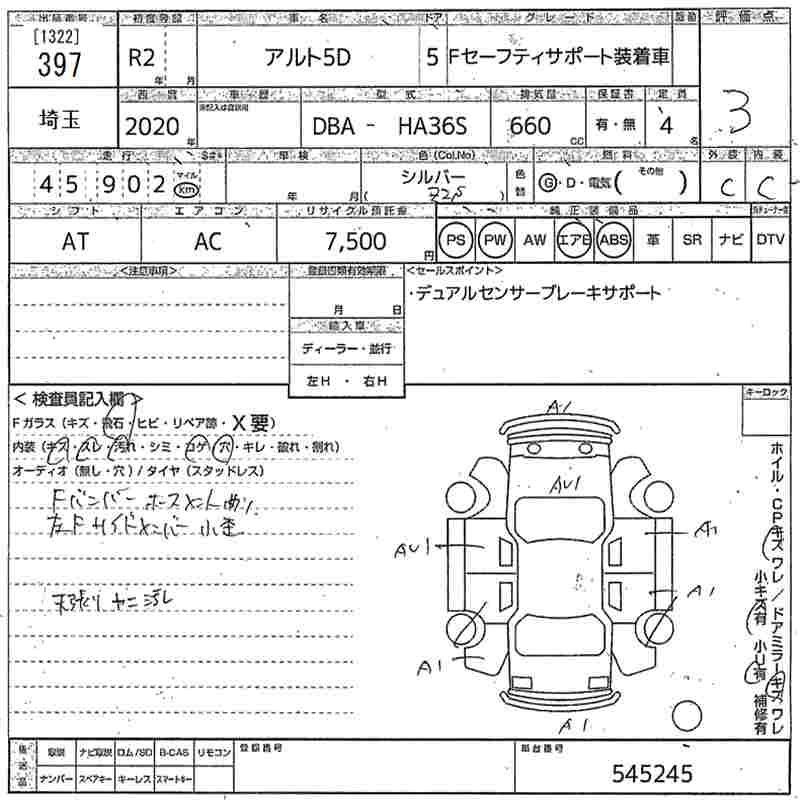 出品番号 初度登録 車名 ドア グレード 型番 評価点
[1322]
397 R2 年 月 アルト5D 5 Fセーフティサポート装着車
3
西暦 車歴 型式 排気量 保証書 定員
埼玉 2020 年 DBA - HA36S 660 cc 有・無 4 名
走行 車検 色(Col.No) 燃料 外装 内装
45902 マイル km 年 月 シルバー Z2S 色替 G・D・電気( その他 ) C C
シフト エアコン リサイクル預託金 純正装備品
AT AC 7,500 円 PS PW AW エアB ABS 革 SR ナビ DTV
<注意事項> 登録書類有効期限 <セールスポイント>
月 日 ・デュアルセンサーブレーキサポート
輸入車
ディーラー・並行
左H ・ 右H
< 検査員記入欄 > キーロック
Fガラス (キズ・飛石・ヒビ・リペア跡・X要)
内装 (キズ・スレ・汚れ・シミ・コゲ・穴・キレ・破れ・割れ)
オーディオ (無し・穴) / タイヤ (スタッドレス)
Fバンパー ホースメント曲り
左Fサイドメンバー 小歪
天張り ヤニ汚レ
A1
AU1
AU1 A1
A1
A1
A1
ホイル・CPキズワレ / ドアミラーキズワレ
小キズ有 小U有 補修有
後送品 取説 ナビ取説 ロム/SD B-CAS リモコン 登録番号 車台番号
ナンバー スペアキー キーレス スマートキー 545245